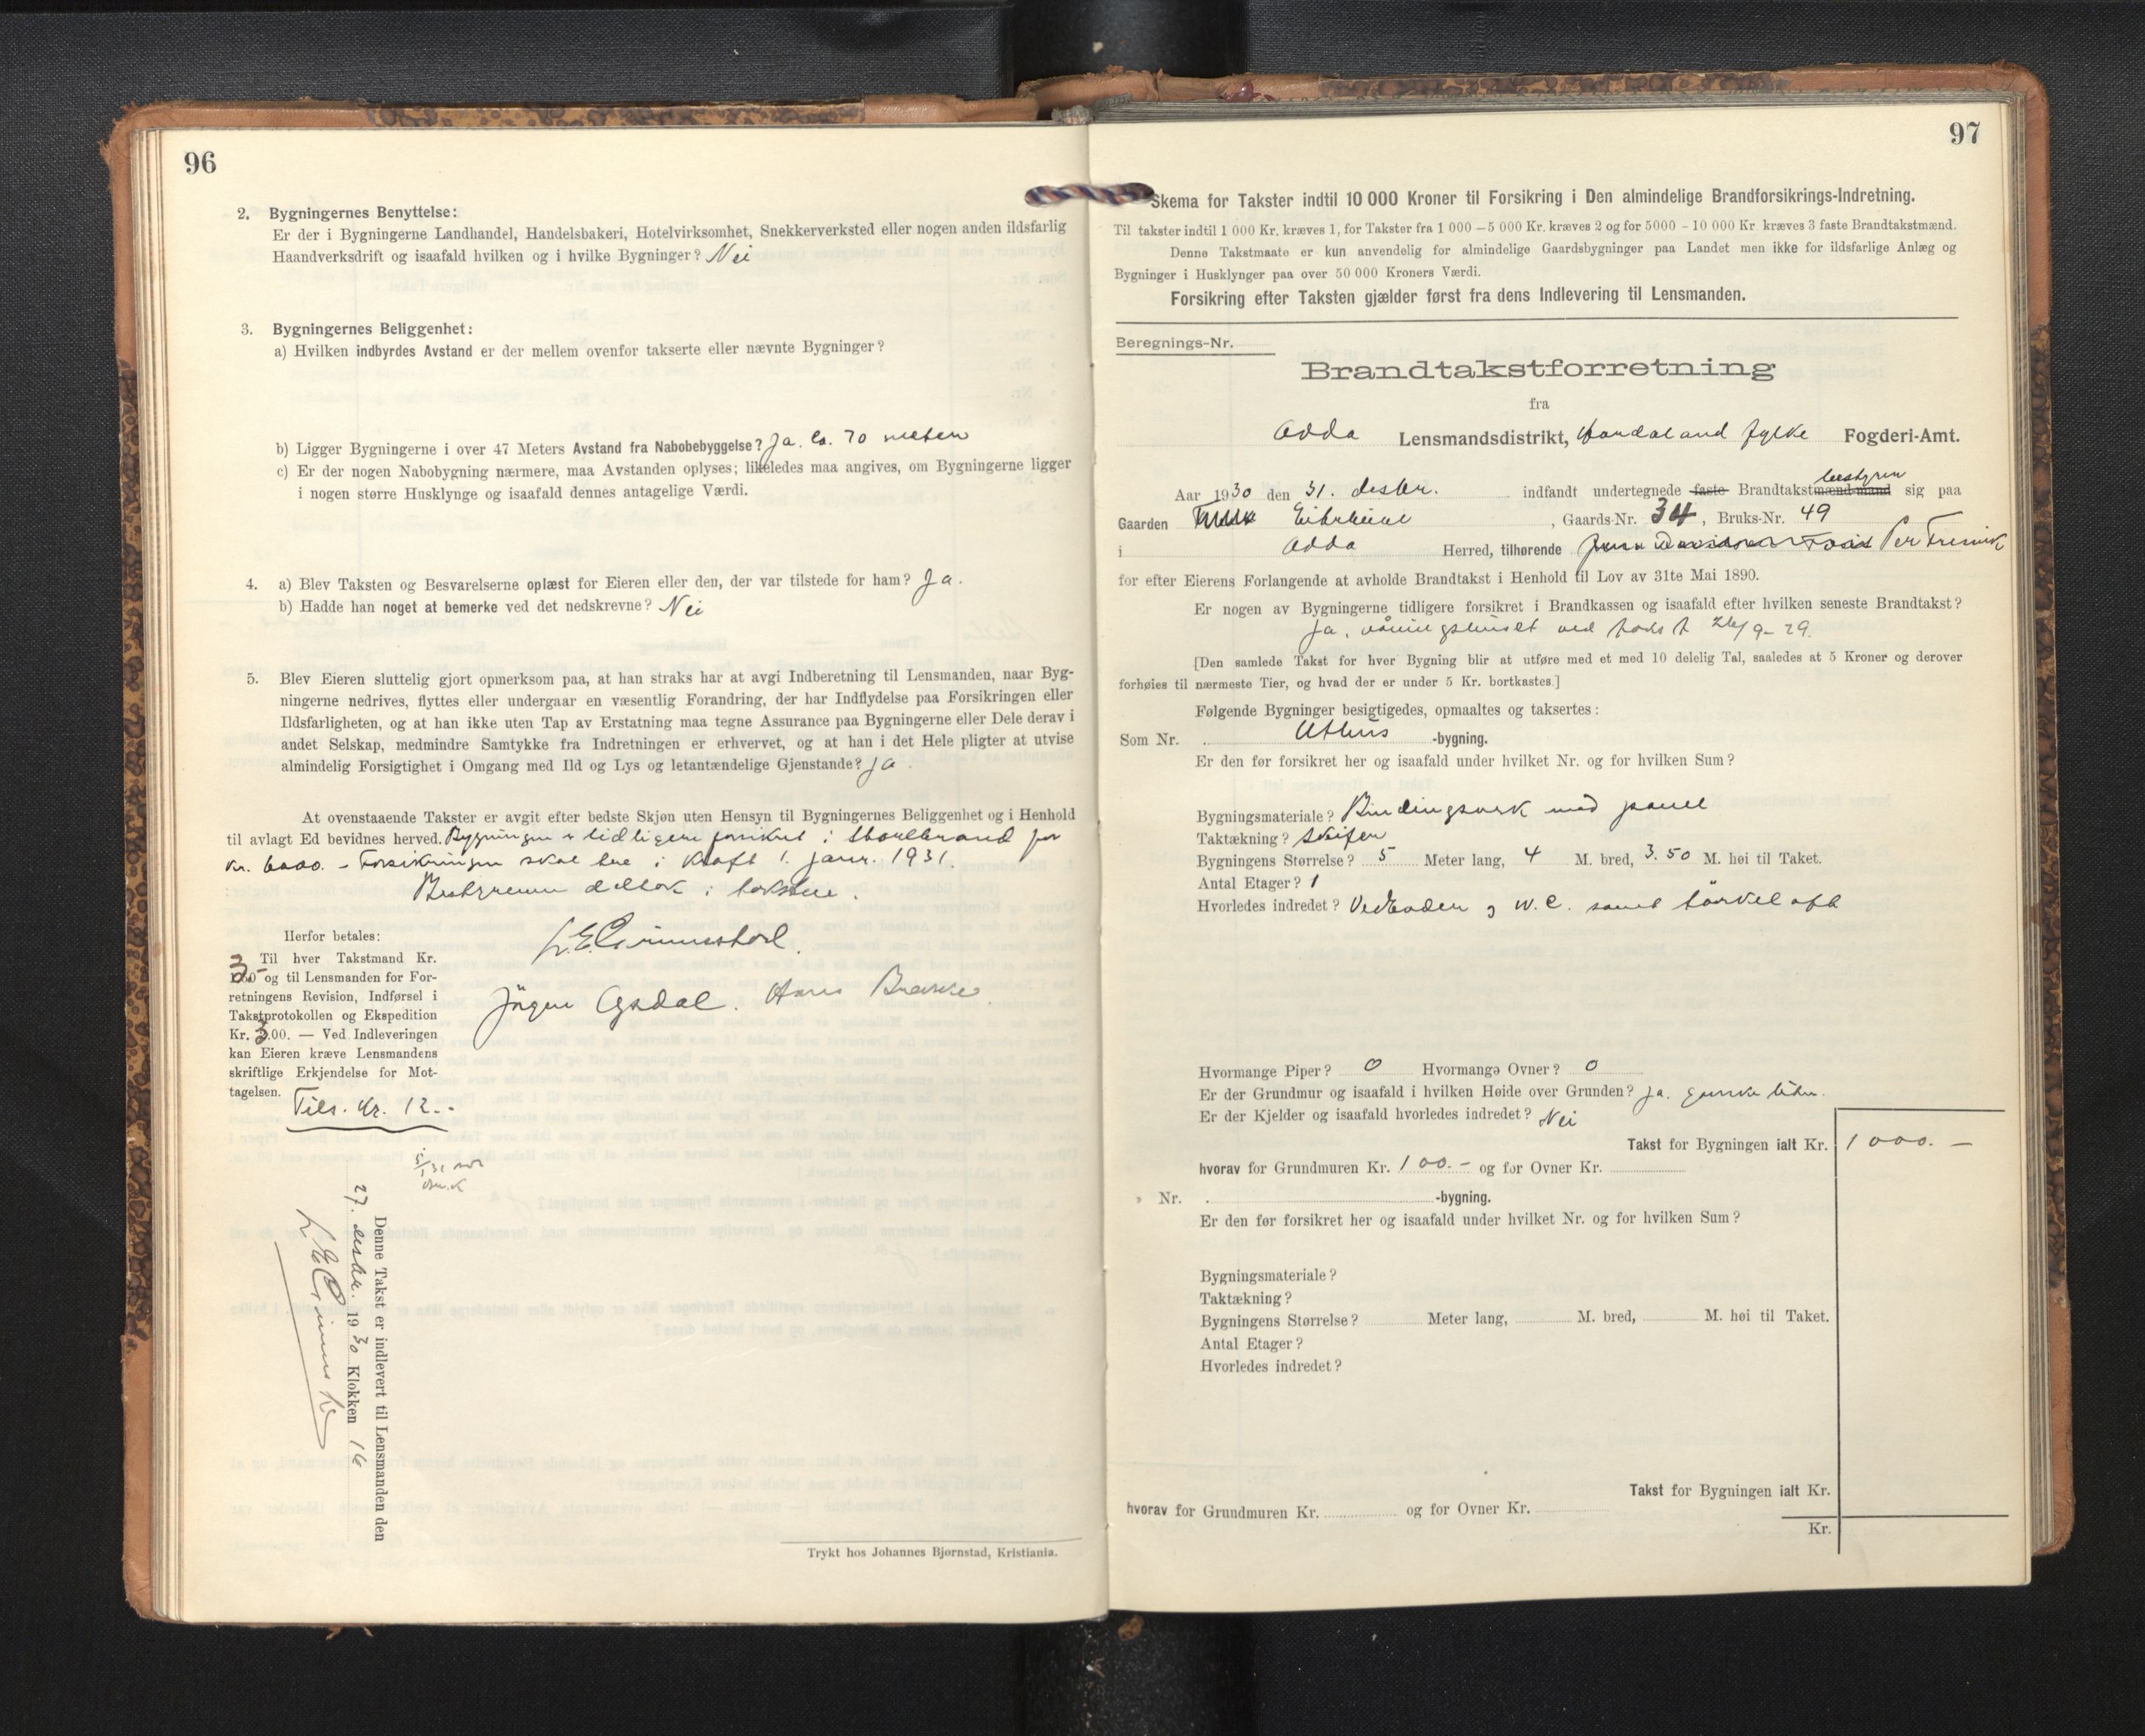 96
2. Bygningernes Benyttelse:
Er der i Bygningerne Landhandel, Handelsbakeri, Hotelvirksomhet, Snekkerverksted eller nogen anden ildsfarlig
Haandverksdrift og isaafald hvilken og i hvilke Bygninger? Nei
3. Bygningernes Beliggenhet:
a) Hvilken indbyrdes Avstand er der mellem ovenfor takserte eller nævnte Bygninger?
b) Ligger Bygningerne i over 47 Meters Avstand fra Nabobebyggelse? Ja. Ca. 70 meter
c) Er der nogen Nabobygning nærmere, maa Avstanden oplyses; likeledes maa angives, om Bygningerne ligger
i nogen større Husklynge og isaafald dennes antagelige Værdi.
4. a) Blev Taksten og Besvarelserne oplæst for Eieren eller den, der var tilstede for ham? Ja.
b) Hadde han noget at bemerke ved det nedskrevne? Nei
5. Blev Eieren sluttelig gjort opmerksom paa, at han straks har at avgi Indberetning til Lensmanden, naar Byg-
ningerne nedrives, flyttes eller undergaar en væsentlig Forandring, der har Indflydelse paa Forsikringen eller
Ildsfarligheten, og at han ikke uten Tap av Erstatning maa tegne Assurance paa Bygningerne eller Dele derav i
andet Selskap, medmindre Samtykke fra Indretningen er erhvervet, og at han i det Hele pligter at utvise
almindelig Forsigtighet i Omgang med Ild og Lys og letantændelige Gjenstande? Ja
At ovenstaaende Takster er avgit efter bedste Skjøn uten Hensyn til Bygningernes Beliggenhet og i Henhold
til avlagt Ed bevidnes herved. Bygningen er tidligere forsikret i Storebrand for
Kr. 6000. - Forsikringen skal tre i Kraft 1. janr. 1931.
Bestyreren deltok i taksten.
Herfor betales:
Til hver Takstmand Kr.
3.- og til Lensmanden for For-
retningens Revision, Indførsel i
Takstprotokollen og Ekspedition
Kr. 3.00. — Ved Indleveringen
kan Eieren kræve Lensmandens
skriftlige Erkjendelse for Mot-
tagelsen.
Tils. Kr. 12.-
Jörgen Agdal. Hans
Denne Takst er indlevert til Lensmanden den
27. desbr. 1930 Klokken 16
Trykt hos Johannes Bjørnstad, Kristiania.
97
Skema for Takster indtil 10 000 Kroner til Forsikring i Den almindelige Brandforsikrings-Indretning.
Til takster indtil 1 000 Kr. kræves 1, for Takster fra 1 000 – 5 000 Kr. kræves 2 og for 5000 – 10 000 Kr. kræves 3 faste Brandtakstmænd.
Denne Takstmaate er kun anvendelig for almindelige Gaardsbygninger paa Landet men ikke for ildsfarlige Anlæg og
Bygninger i Husklynger paa over 50 000 Kroners Værdi.
Forsikring efter Taksten gjælder først fra dens Indlevering til Lensmanden.
Beregnings-Nr.
Brandtakstforretning
fra
Odda Lensmandsdistrikt, Hordaland fylke Fogderi-Amt.
bestyrer
Aar 1930 den 31. desbr. indfandt undertegnede faste Brandtakstmænd mand sig paa
Gaarden Eitrheim, Gaards-Nr. 34, Bruks-Nr. 49
i Odda Herred, tilhørende Per
for efter Eierens Forlangende at avholde Brandtakst i Henhold til Lov av 31te Mai 1890.
Er nogen av Bygningerne tidligere forsikret i Brandkassen og isaafald efter hvilken seneste Brandtakst?
Ja, våningshuset ved takst 26/9-29.
[Den samlede Takst for hver Bygning blir at utføre med et med 10 delelig Tal, saaledes at 5 Kroner og derover
forhøies til nærmeste Tier, og hvad der er under 5 Kr. bortkastes.]
Følgende Bygninger besigtigedes, opmaaltes og taksertes:
Som Nr. Uthus -bygning.
Er den før forsikret her og isaafald under hvilket Nr. og for hvilken Sum?
Bygningsmateriale? Bindingsverk med panel
Taktækning? Skifer
Bygningens Størrelse? 5 Meter lang, 4 M. bred, 3.50 M. høi til Taket.
Antal Etager? 1
Hvorledes indredet? Vedboder og W.C. samt törkeloft
Hvormange Piper? 0 Hvormange Ovner? 0
Er der Grundmur og isaafald i hvilken Høide over Grunden? Ja. ganske liten.
Er der Kjelder og isaafald hvorledes indredet? Nei
Takst for Bygningen ialt Kr. 1000.—
hvorav for Grundmuren Kr. 100.- og for Ovner Kr.
» Nr. -bygning.
Er den før forsikret her og isaafald under hvilket Nr. og for hvilken Sum?
Bygningsmateriale?
Taktækning?
Bygningens Størrelse? Meter lang, M. bred, M. høi til Taket.
Antal Etager?
Hvorledes indredet?
Takst for Bygningen ialt Kr.
hvorav for Grundmuren Kr. og for Ovner Kr.
Kr.